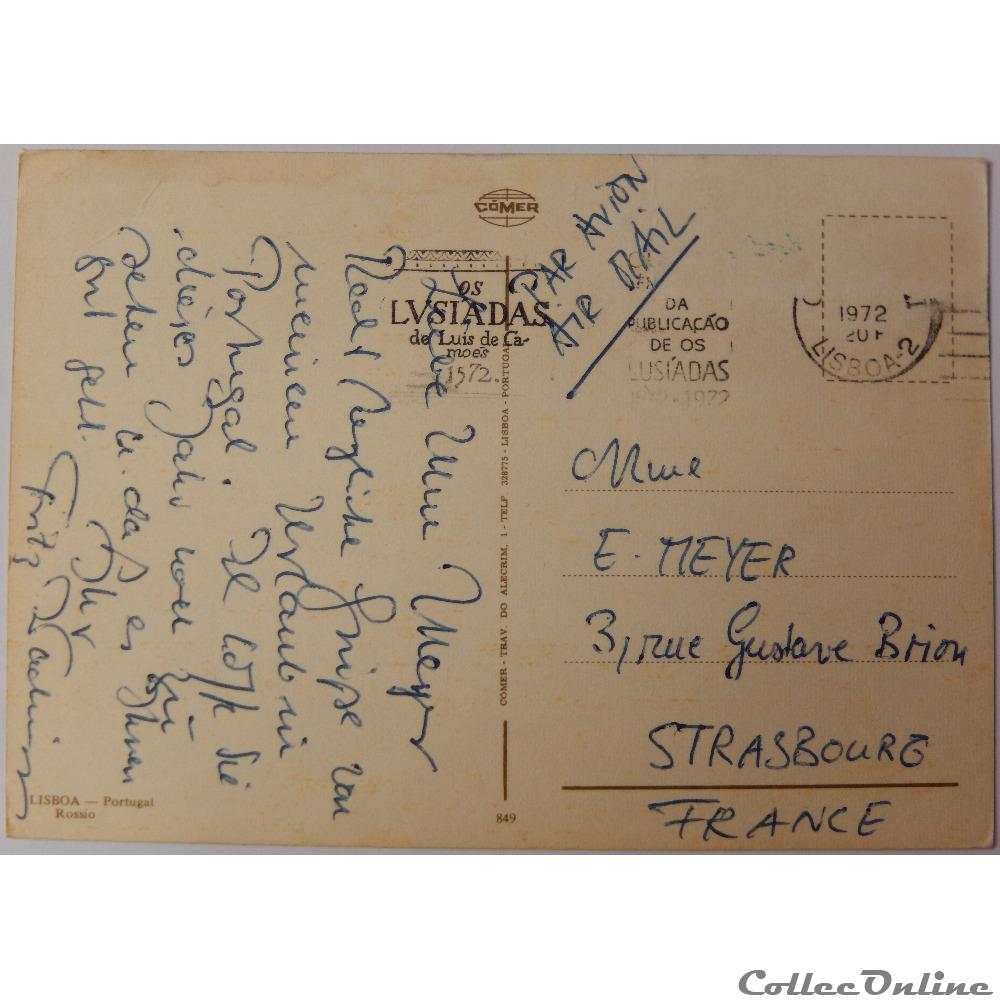 CÓMER
PAR AVION
AIR MAIL
OS
LVSIADAS
de Luis de Ca-
moẽs
1572.
DA
PUBLICAÇÃO
DE OS
LUSÍADAS
1572-1972
1972
20 F
LISBOA-2
Liebe Mme Meyer
Recht herzliche Grüße von
meinem Urlaub in
Portugal. Ich hoffe Sie
dieses Jahr noch zu
sehen u. daß es Ihnen
gut geht.
Ihr
Fritz
Mme
E. MEYER
3, rue Gustave Brion
STRASBOURG
FRANCE
CÓMER - TRAV. DO ALECRIM, 1 - TELF. 328775 - LISBOA - PORTUGAL
LISBOA — Portugal
Rossio
849
CollecOnline